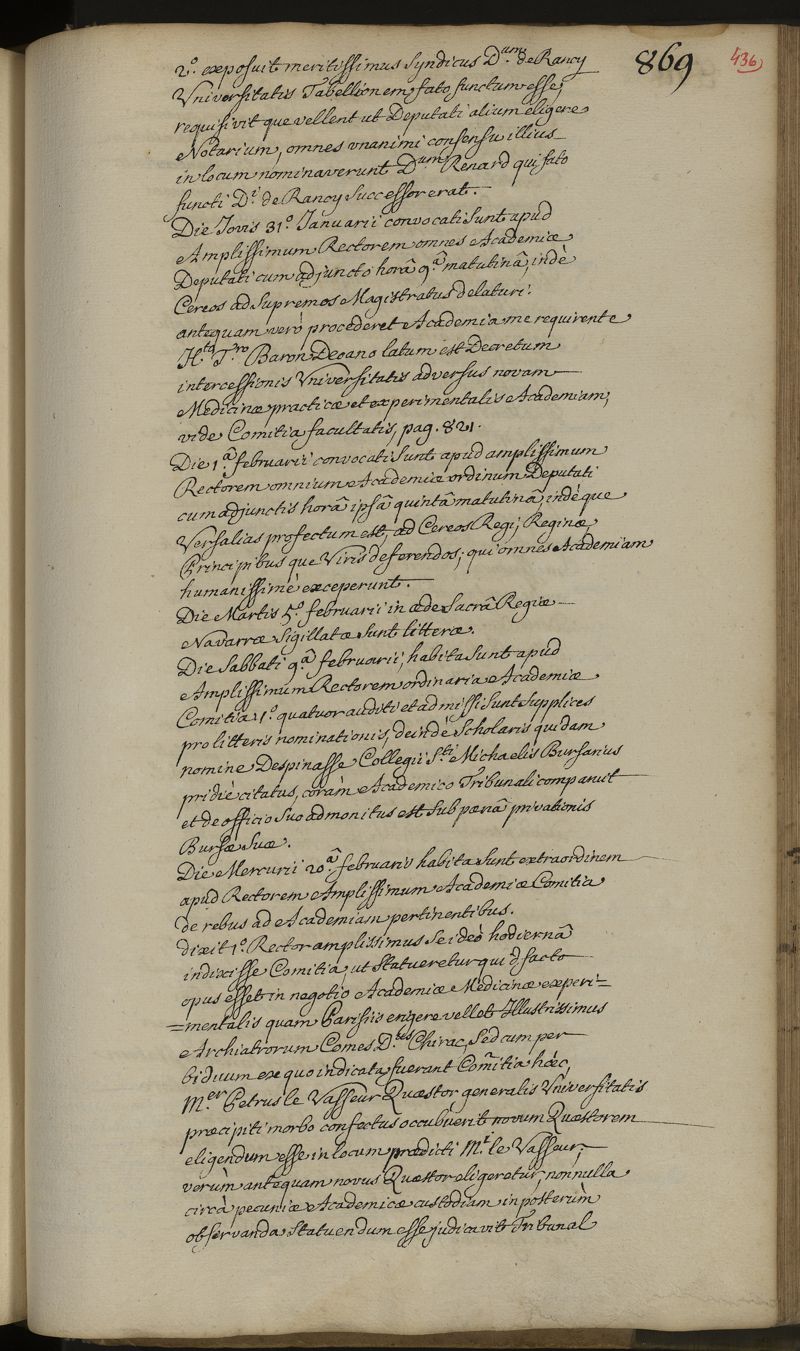 869
436
2.º exposuit meritissimus Syndicus D.um de Rancy
Universitatis Tabellionem fato functum esse,
requisivit que vellent ut Deputati alium eligere
Notarium, omnes unanimi consensu illius
in locum nominaverunt D.um Renard qui fato
functi D.i de Rancy Successor erat.
Die Iovis 31.º Ianuarii convocati Sunt apud
Amplissimum Rectorem omnes Academiæ
Deputati cum adjuncto horâ 9.â matutinâ, indè
Cereos ad Supremos Magistratus delaturi.
antequam verò procederet Academia me requirente
H.to T.ro Baron Decano latum est Decretum
intercessionis Universitatis adversus novam
Medicinæ practicæ et experimentalis Academiam,
vide Comitia facultatis, pag. 821.
Die 1.â februarii convocati Sunt apud amplissimum
Rectorem omnium Academiæ ordinum Deputati
cum adjunctis horâ ipsâ quintâ matutinâ, indéque
Versalias profectum est, ad Cereos Regi, Reginæ
Principibus que Viris deferendos, qui omnes Academiam
humanissimè exceperunt.
Die Martis 5.º februarii in æde Sacrâ Regiæ
Navarræ Sigillatæ Sunt litteræ.
Die Sabbati 9.â februarii, habita Sunt apud
Amplissimum Rectorem ordinaria Academiæ
Comitia 1.º quatuor auditi et admissi Sunt Supplices
pro litteris nominationis, deindè Scholaris quidam
nomine Despinasse Collegii S.ti Michaelis Bursarius
pridiè citatus, coràm Academico Tribunali comparuit
et de officio Suo admonitus est Sub pœnâ privationis
Bursæ Suæ.
Die Mercurii 20.â februarii habita Sunt extraordinem
apud Rectorem Amplissimum Academiæ Comitia
de rebus ad Academiam pertinentibus.
dixit 1.º Rector amplissimus Se ideò hodiernâ
indixisse Comitia, ut Statueretur quid facto
opus esset in negotio Academiæ Medicinæ experi=
=mentalis quam Parisiis erigere vellet Illustrissimus
Archiatrorum Comes D.nus Chirac, Sed cum per
biduum ex quo indicata fuerant Comitia hæc,
M.er Petrus le Vasseur Quæstor generalis Universitatis
præcipiti morbo confectus occubuerit novum Quæstorem
eligendum esse in locum prædicti M.i le Vasseur.
verùm antequam novus Quæstor eligeretur, nonnulla
circà pecuniæ Academicæ custodiam in posterùm
observanda Statuendum esse judicavit Tribunal